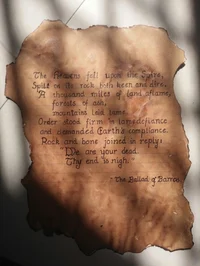 The Heavens fell upon the Spire,
Split on its rock both keen and dire.
"A thousand miles of land aflame,
forests of ash,
mountains laid lame.
Order stood firm in lone defiance
and demanded Earth's compliance.
Rock and bone joined in reply:
We are your dead.
Thy end is nigh."
- The Ballad of Barrow